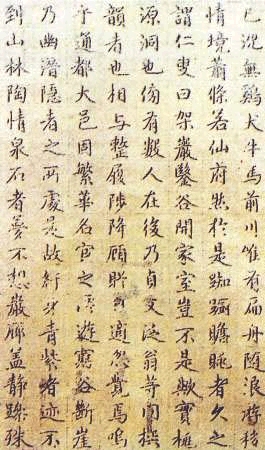 已況無鷄犬牛馬前川唯有扁舟随浪游移
情境蕭條若仙府然於是踟躕瞻眺者久之
謂仁叟曰架巖鑿谷開家室豈不是歟實桃
源洞也傍有數人在後乃貞父泛翁等同撰
韻者也相与整履陟降顧眄適然覺焉嗚
乎通都大邑固繁華名宦之所遊窮谷斷崖
乃幽潛隱者之所處是故紆身青紫者迹不
到山林陶情泉石者夢不想巖廊盖静躁殊